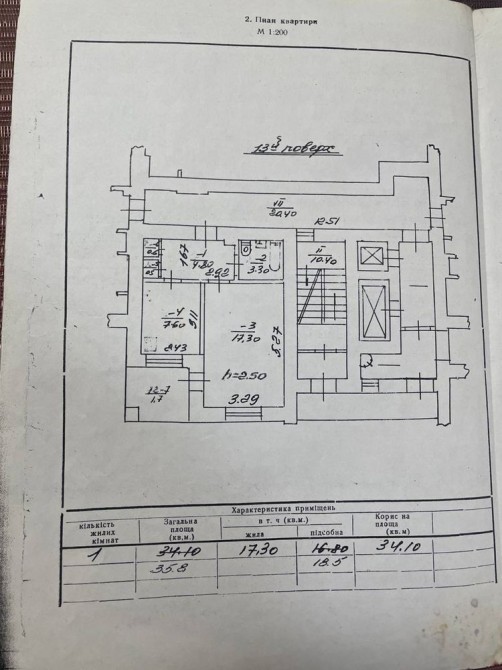 2. План квартири
М 1:200
13й поверх
III
30.40
12.51
1.67
-1
4.20
2.92
-2
3.30
II
10.40
-4
7.60
3.11
2.43
-3
17,30
5.27
h=2.50
3.29
1.7
Характеристика приміщень
кількість жилих кімнат
Загальна площа (кв.м.)
в т. ч (кв.м.)
жила
підсобна
Корисна площа (кв.м)
1 34.10 17,30 16.80 34.10
35.8 18.5